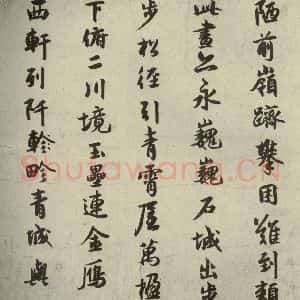 陋前嶺躋攀困難到
此畫永巍巍石城出步
步松徑引青霄屋萬楹
下俯二川境玉壘連金鴈
西軒列阡畛青城與
Shufawang.CN